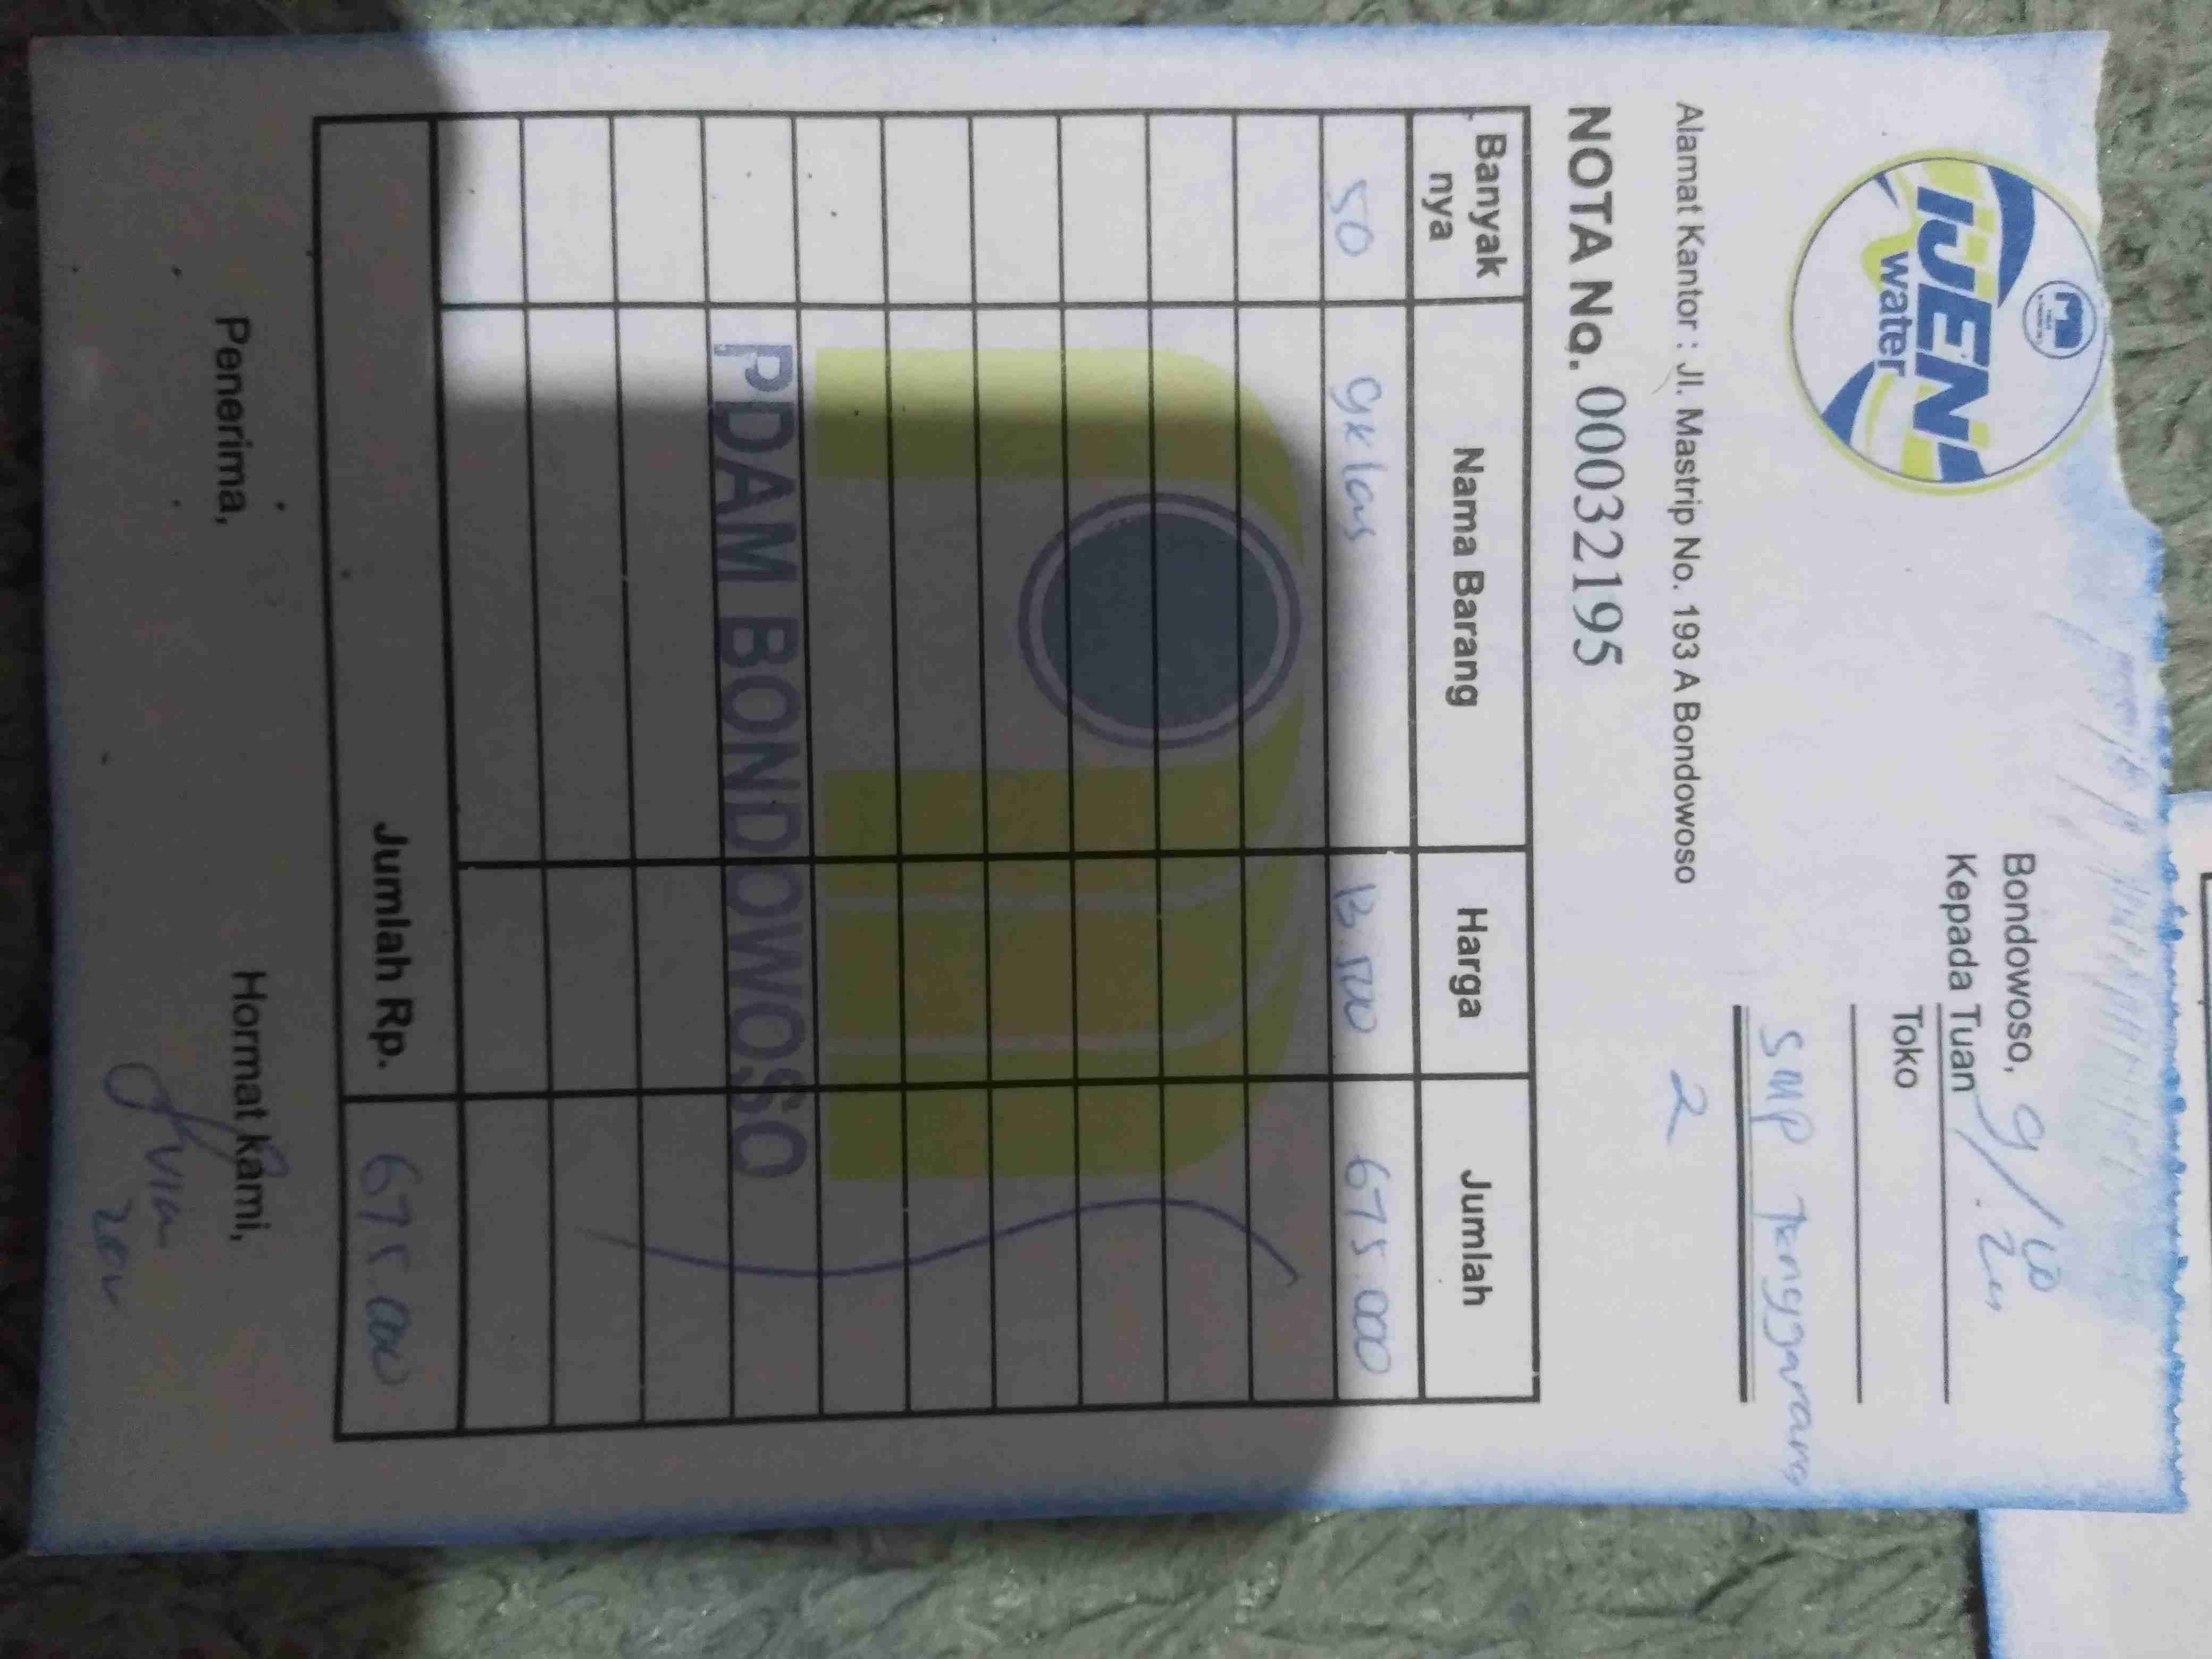 IJEN
water
Bondowoso, 9/10
Kepada Tuan
Toko
SMP Tenggarang
2
Alamat Kantor : Jl. Mastrip No. 193 A Bondowoso
NOTA No. 00032195
Banyak nya Nama Barang Harga Jumlah
50 gklas 13.500 675.000
PDAM BONDOWOSO
Jumlah Rp. 675.000
Penerima, Hormat kami,